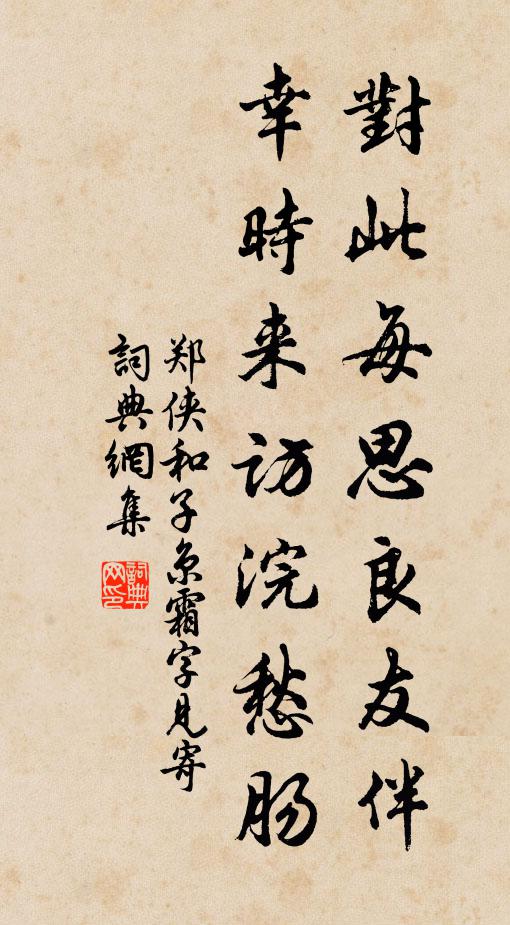 對此每思良友伴
幸時来訪浣愁肠
郑侠和子京霜字見寄
詞典網集
詞典网印